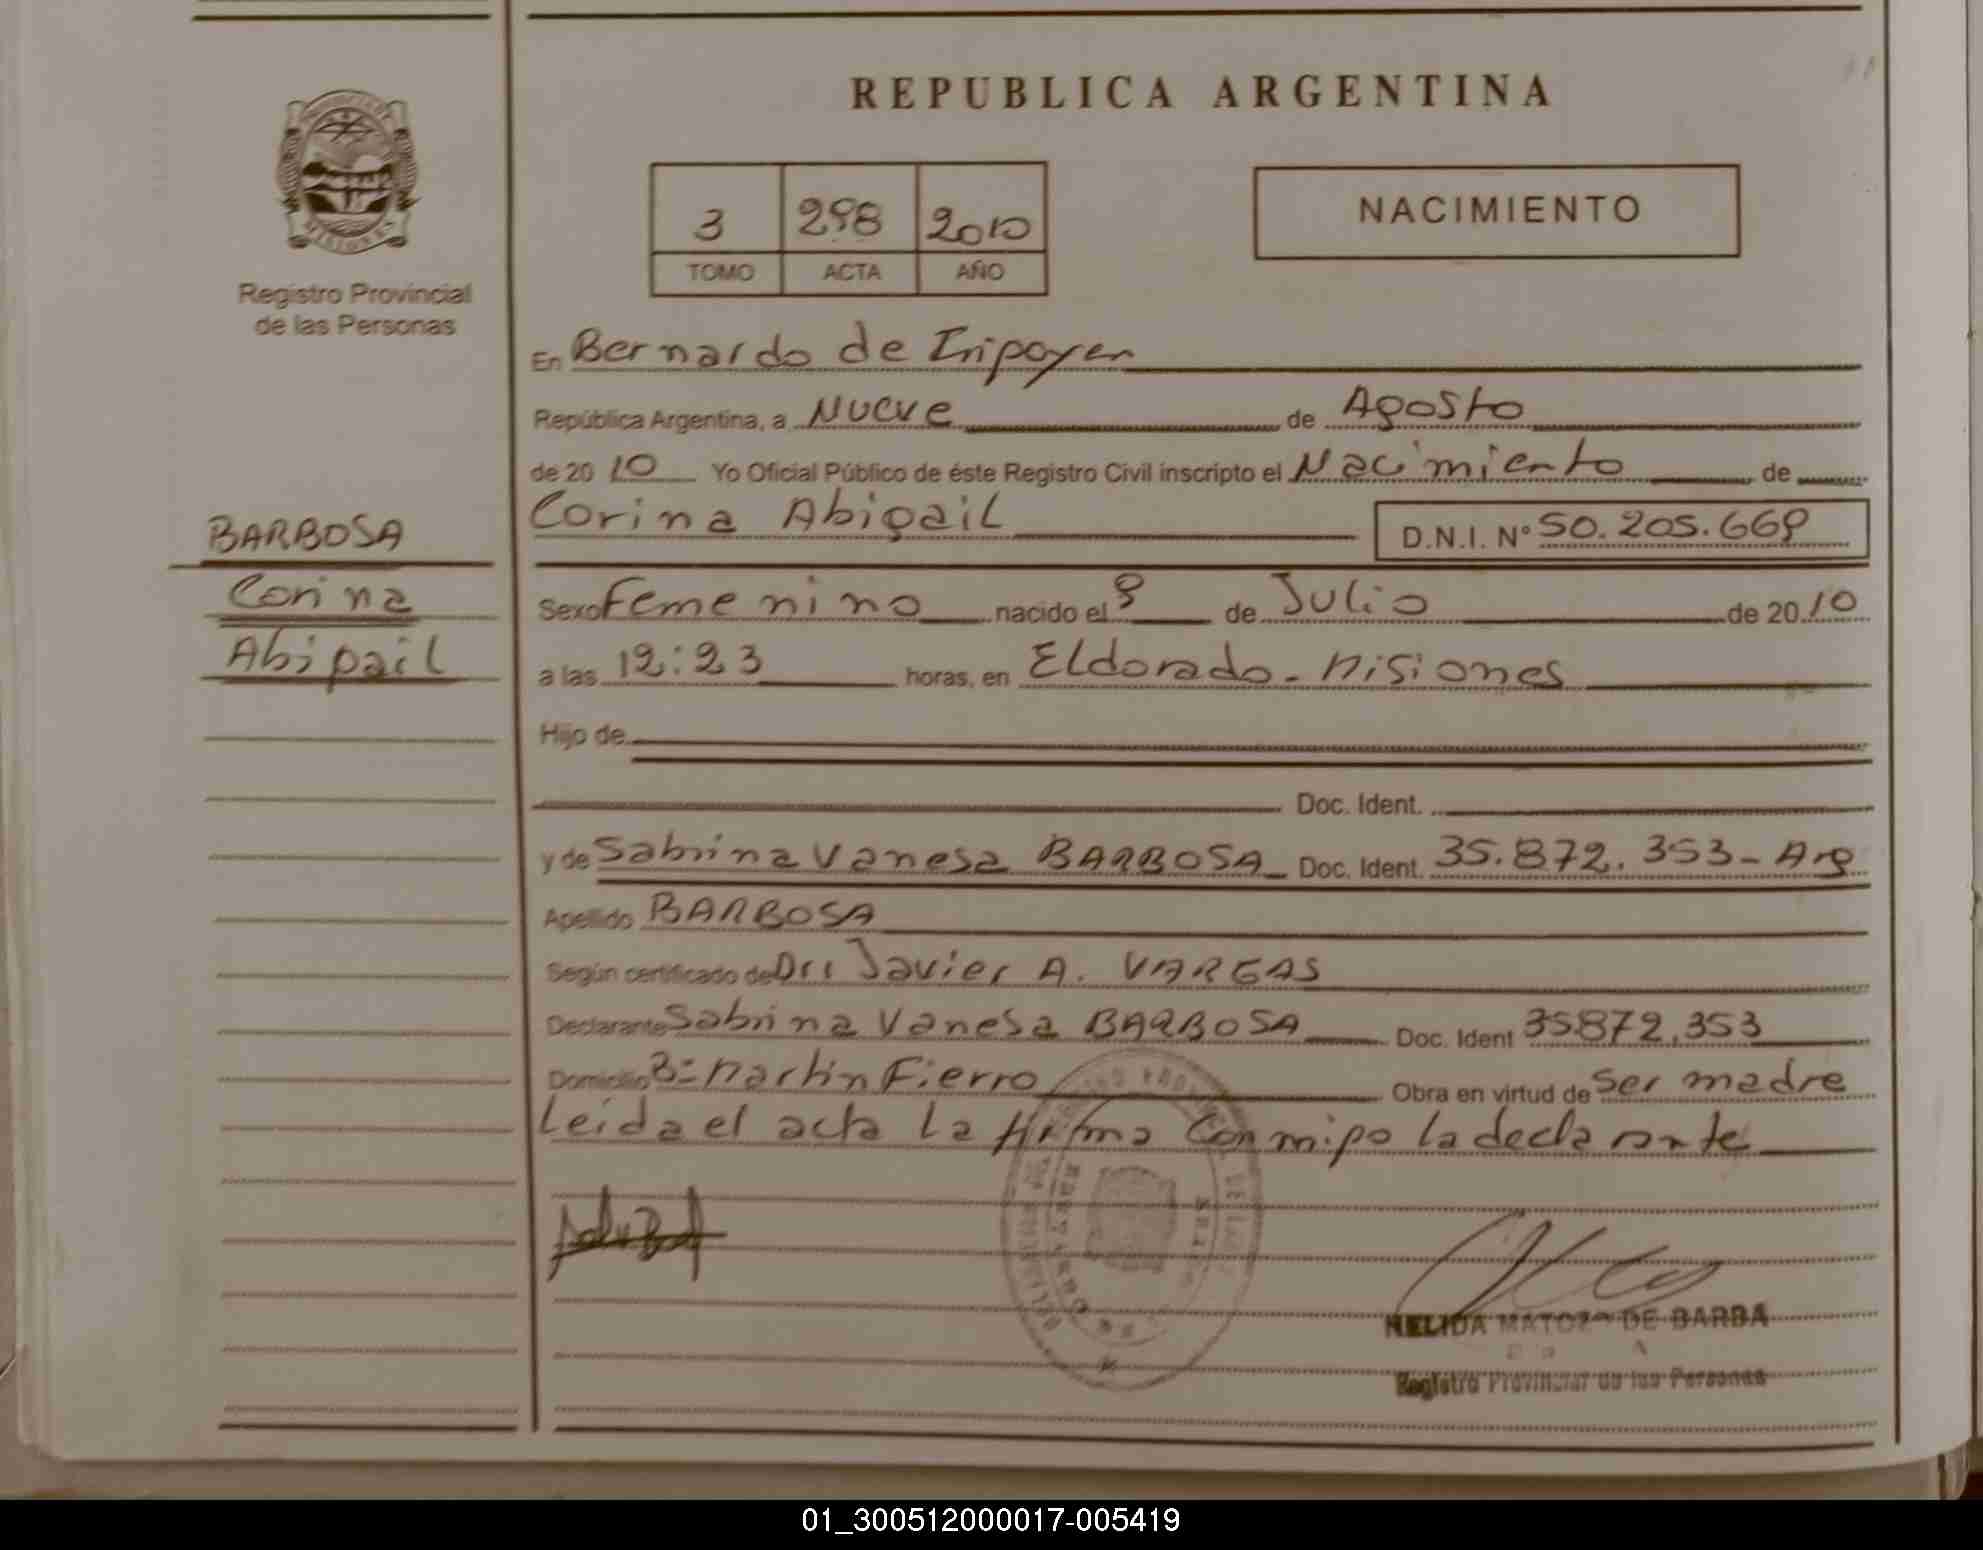 REPUBLICA ARGENTINA
PROVINCIA DE
MISIONES
Registro Provincial
de las Personas
3 298 2010
TOMO ACTA AÑO
NACIMIENTO
En Bernardo de Iripoyen
República Argentina, a Nueve de Agosto
de 20 10 Yo Oficial Público de éste Registro Civil inscripto el Nacimiento de
Corina Abigail D.N.I. Nº 50.205.669
BARBOSA
Corina
Abigail
Sexo Femenino nacido el 9 de Julio de 20 10
a las 12:23 horas, en Eldorado - Misiones
Hijo de
Doc. Ident.
y de Sabrina Vanesa BARBOSA Doc. Ident. 35.872.353 - Arg
Apellido BARBOSA
Según certificado de Dr: Javier A. VARGAS
Declarante Sabrina Vanesa BARBOSA Doc. Ident 35872.353
Domicilio Bº Martin Fierro Obra en virtud de ser madre
Leida el acta la firma conmigo la declarante
NELIDA MATOZO DE BARBA
Registro Provincial de las Personas
01_300512000017-005419